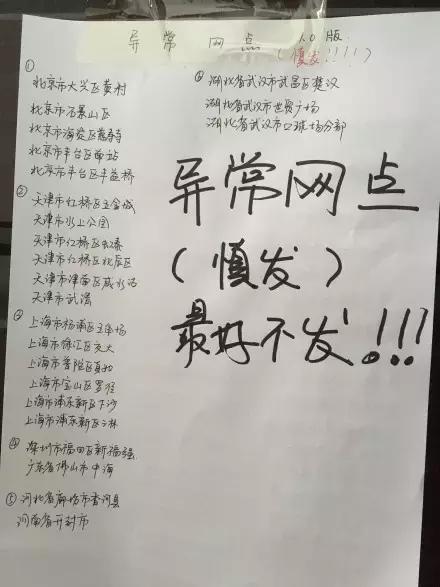 异常网点 1.0版
(慎发!!!!)
①
北京市大兴区黄村
北京市石景山区
北京市海淀区慈寿寺
北京市丰台区西站
北京市丰台区丰益桥
②
天津市红桥区五金城
天津市水上公园
天津市红桥区虹泰
天津市红桥区北辰区
天津市津南区咸水沽
天津市武清
上海市杨浦区五角场
上海市徐汇区交大
上海市普陀区真如
上海市宝山区罗泾
上海市浦东新区下沙
上海市浦东新区三林
④ 深圳市福田区新福强
广东省佛山市中海
⑤ 河北省廊坊市香河县
河南省开封市
湖北省武汉市武昌区楚汉
湖北省武汉市世贸广场
湖北省武汉市口球场分部
异常网点
(慎发)
最好不发!!!